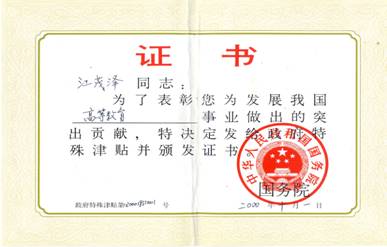 证书
江茂泽 同志:
为了表彰您为发展我国
高等教育 事业做出的突
出贡献,特决定发给政府特
殊津贴并颁发证书
中华人民共和国国务院
国务院
政府特殊津贴第 号
2000年 月一日